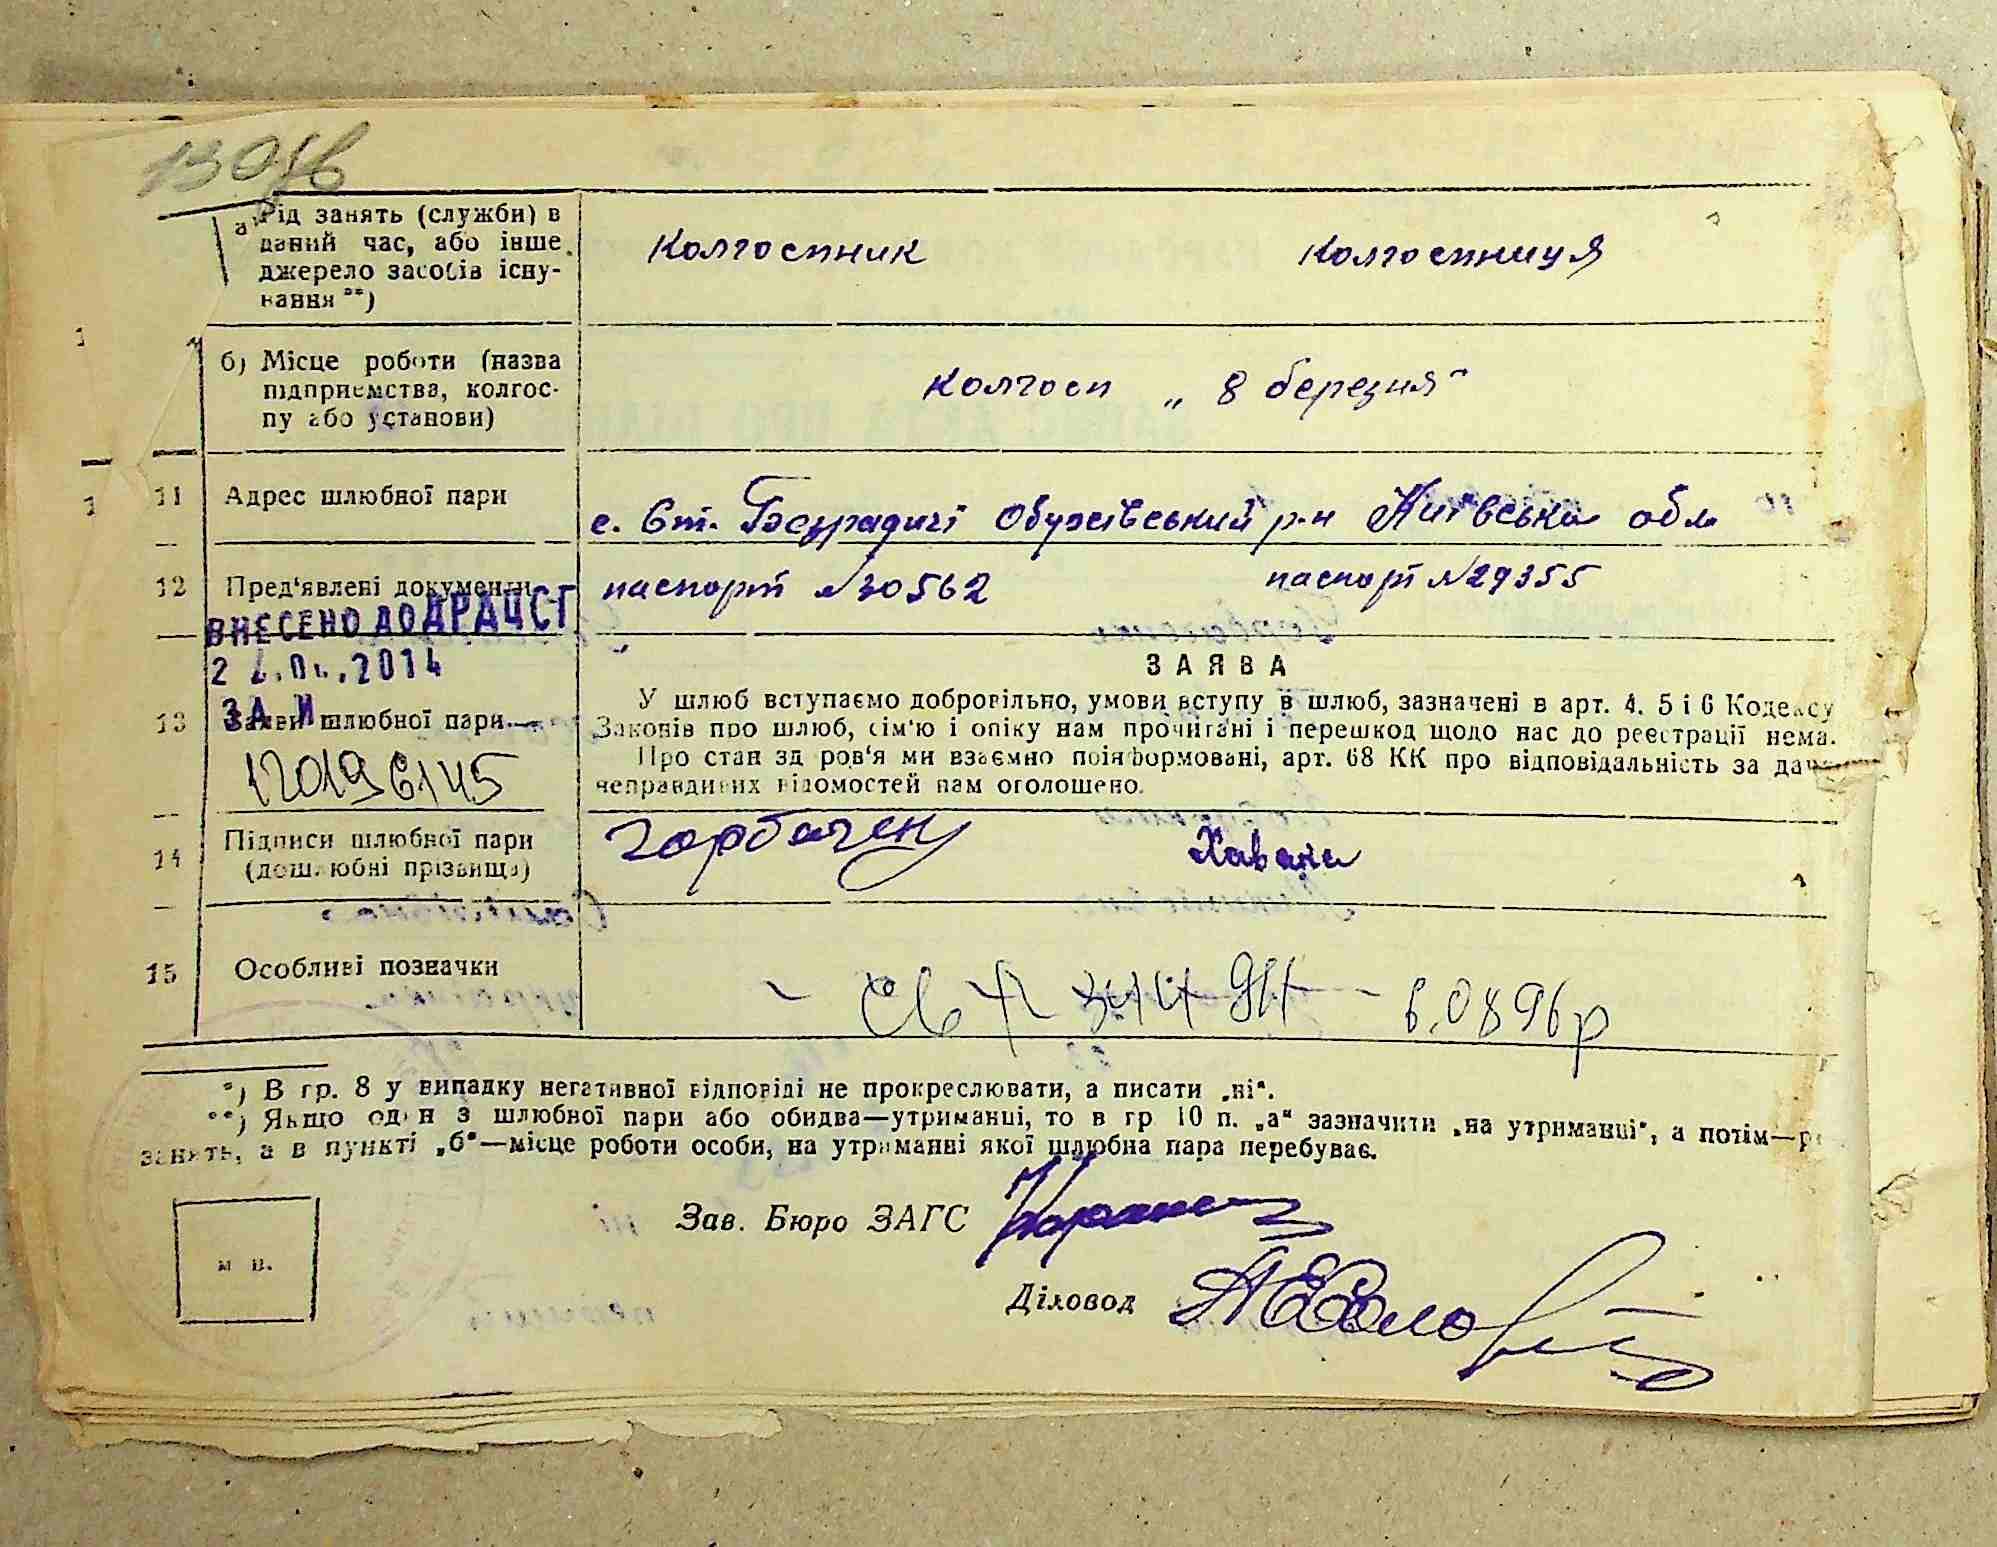 а) Рід занять (служби) в
даний час, або інше
джерело засобів існу-
вання **)
Колгоспник Колгоспниця
б) Місце роботи (назва
підприємства, колгос-
пу або установи)
Колгосп „8 березня“
11 Адрес шлюбної пари
с. Ст. Безрадичі Обухівський р-н Київська обл
12 Пред'явлені документи
паспорт №30562 паспорт №29355
ВНЕСЕНО ДО ДРАЦСГ
2014
ЗА №
120196145
13 Заяви шлюбної пари
ЗАЯВА
У шлюб вступаємо добровільно, умови вступу в шлюб, зазначені в арт. 4. 5 і 6 Кодексу
Законів про шлюб, сім'ю і опіку нам прочитані і перешкод щодо нас до реєстрації нема.
Про стан здоров'я ми взаємно поінформовані, арт. 68 КК про відповідальність за дачу
неправдивих відомостей нам оголошено.
14 Підписи шлюбної пари
(дошлюбні прізвища)
Горбачен Хавана
15 Особливі позначки
*) В гр. 8 у випадку негативної відповіді не прокреслювати, а писати „ні“.
**) Якщо один з шлюбної пари або обидва—утриманці, то в гр 10 п. „а“ зазначити „на утриманні“, а потім—р
занять, а в пункті „б“—місце роботи особи, на утриманні якої шлюбна пара перебуває.
Зав. Бюро ЗАГС
м п.
Діловод